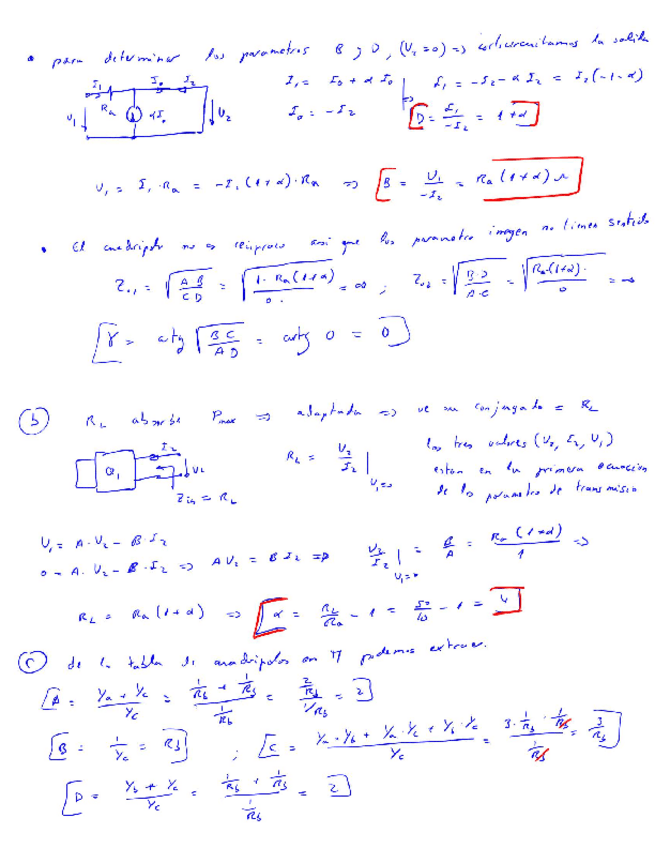 • para determinar los parametros B y D, (U2=0) => cortocircuitamos la salida
I1 I0 I2
I1 = I0 + α I0 | I1 = -I2 - α I2 = I2(-1-α)
U1 Ra αI0 U2
I0 = -I2
=> D = I1/-I2 = 1+α
U1 = I1·Ra = -I2(1+α)·Ra => B = U1/-I2 = Ra(1+α) Ω
• El cuadripolo no es reciproco así que los parametros imagen no tienen sentido
Z01 = √(AB/CD) = √(1·Ra(1+α)/0·) = ∞ ; Z02 = √(B·D/A·C) = √(Ra·(1+α)·/0) = ∞
γ = arctg √(BC/AD) = arctg 0 = 0
b RL absorbe Pmax => adaptada => ve su conjugado = RL
Q1 I2 U2
Zin = RL
RL = U2/I2 | U1=0
los tres valores (U2, I2, U1)
estan en la primera ecuacion
de los parametros de transmisio
U1 = A·U2 - B·I2
0 = A·U2 - B·I2 => AU2 = BI2 => U2/I2 | U1=0 = B/A = Ra(1+α)/1 =>
RL = Ra(1+α) => α = RL/Ra - 1 = 50/10 - 1 = 4
c de la tabla de cuadripolos en π podemos extraer.
A = (Ya + Yc)/Yc = (1/Rb + 1/Rb)/(1/Rb) = (2/Rb)/(1/Rb) = 2
B = 1/Yc = Rb ; C = (Ya·Yb + Ya·Yc + Yb·Yc)/Yc = (3·1/Rb·1/Rb)/(1/Rb) = 3/Rb
D = (Yb + Yc)/Yc = (1/Rb + 1/Rb)/(1/Rb) = 2